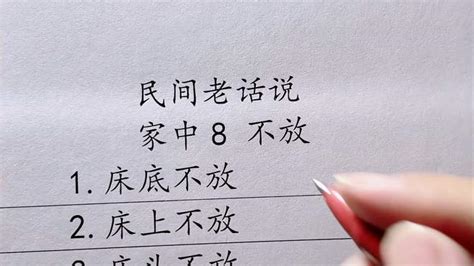 民间老话说
家中8 不放
1.床底不放
2.床上不放
3.床头不放